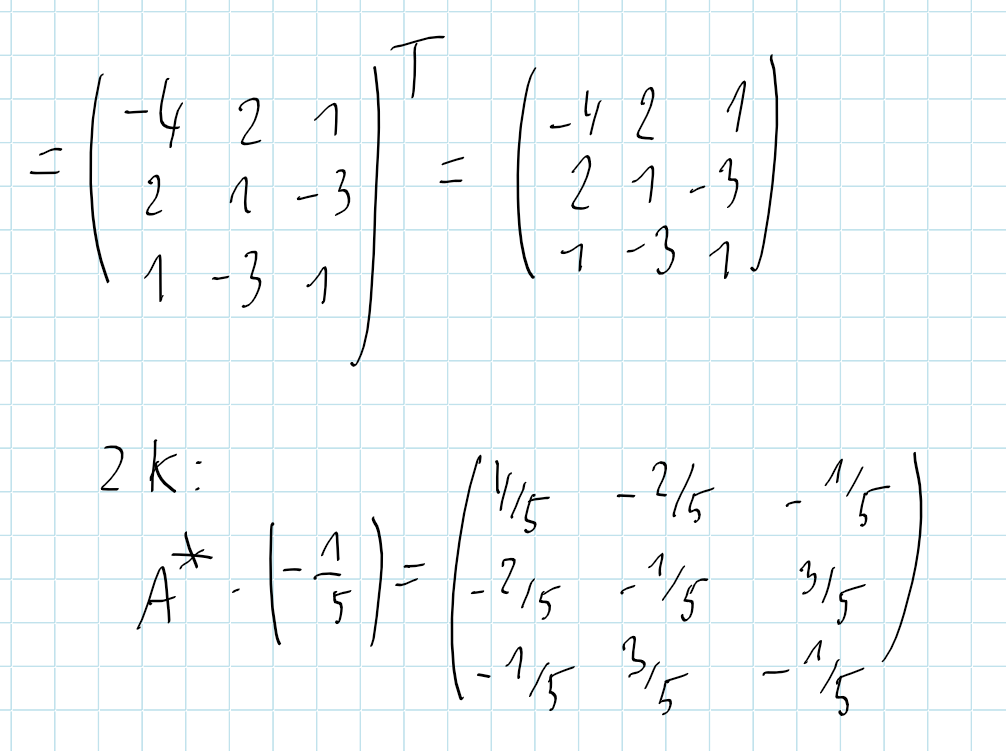 = (-4 2 1
2 1 -3
1 -3 1)^T = (-4 2 1
2 1 -3
1 -3 1)
2 K:
A* · (-1/5) = (4/5 -2/5 -1/5
-2/5 -1/5 3/5
-1/5 3/5 -1/5)